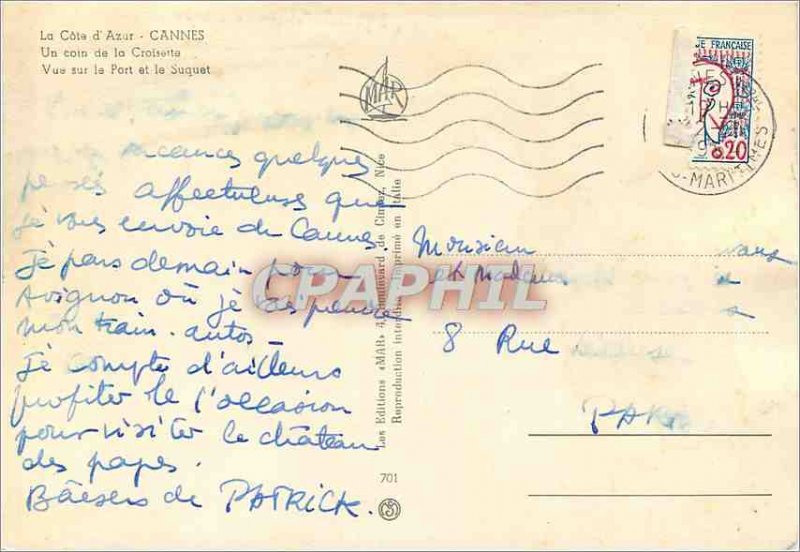 La Côte d'Azur - CANNES
Un coin de la Croisette
Vue sur le Port et le Suquet
MAR
E FRANÇAISE
0,20
MARITIMES
vacances quelques
pensés affectueuses que
je vous envoie de Cannes.
Je pars demain pour
Avignon où je vais prendre
mon train-autos_
Je compte d'ailleurs
profiter de l'occasion
pour visiter le château
des papes.
Baisers de PATRICK.
Les Editions «MAR» Boulevard de Cimiez, Nice
Reproduction interdite Imprimé en Italie
701
Monsieur
et Madame
8 Rue
PAR
CPAPHIL